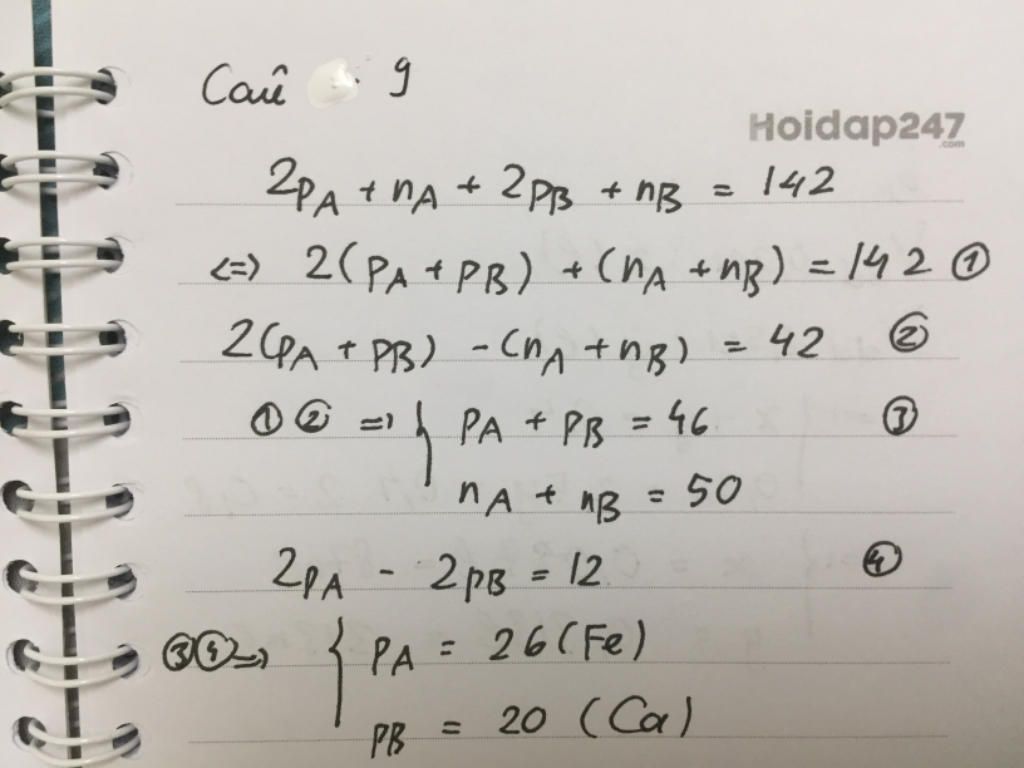 Câu 9
Hoidap247
.com
2pA + nA + 2pB + nB = 142
<=> 2(pA + pB) + (nA + nB) = 142 ①
2(pA + pB) - (nA + nB) = 42 ②
① ② => { pA + pB = 46 ③
nA + nB = 50
2pA - 2pB = 12 ④
③④=> { pA = 26 (Fe)
pB = 20 (Ca)